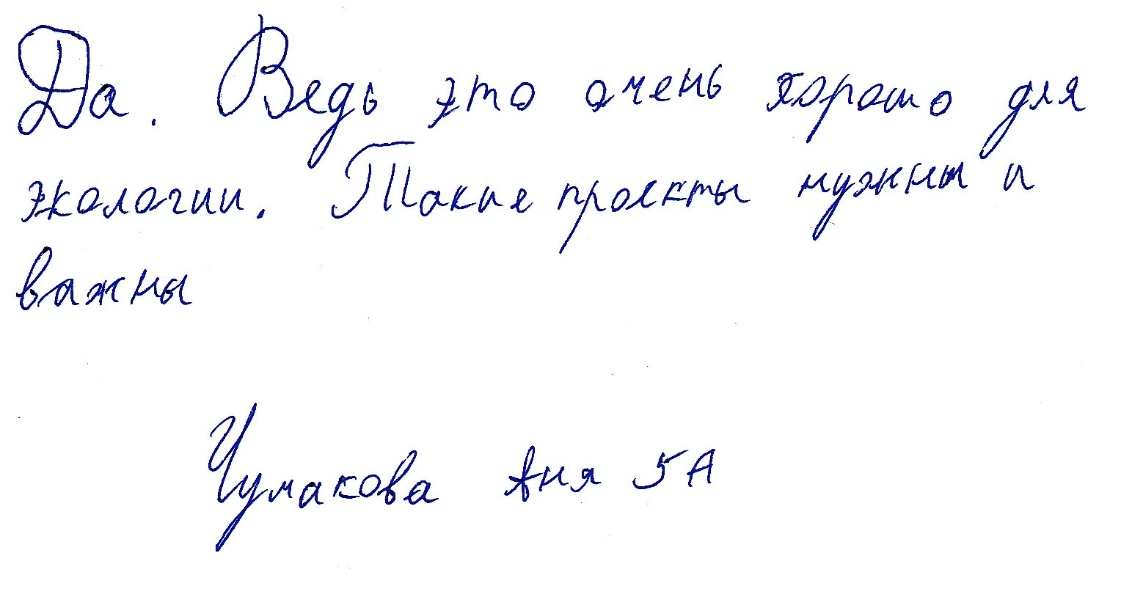 Да. Ведь это очень хорошо для
экологии. Такие проекты нужны и
важны
Чумакова Аня 5А